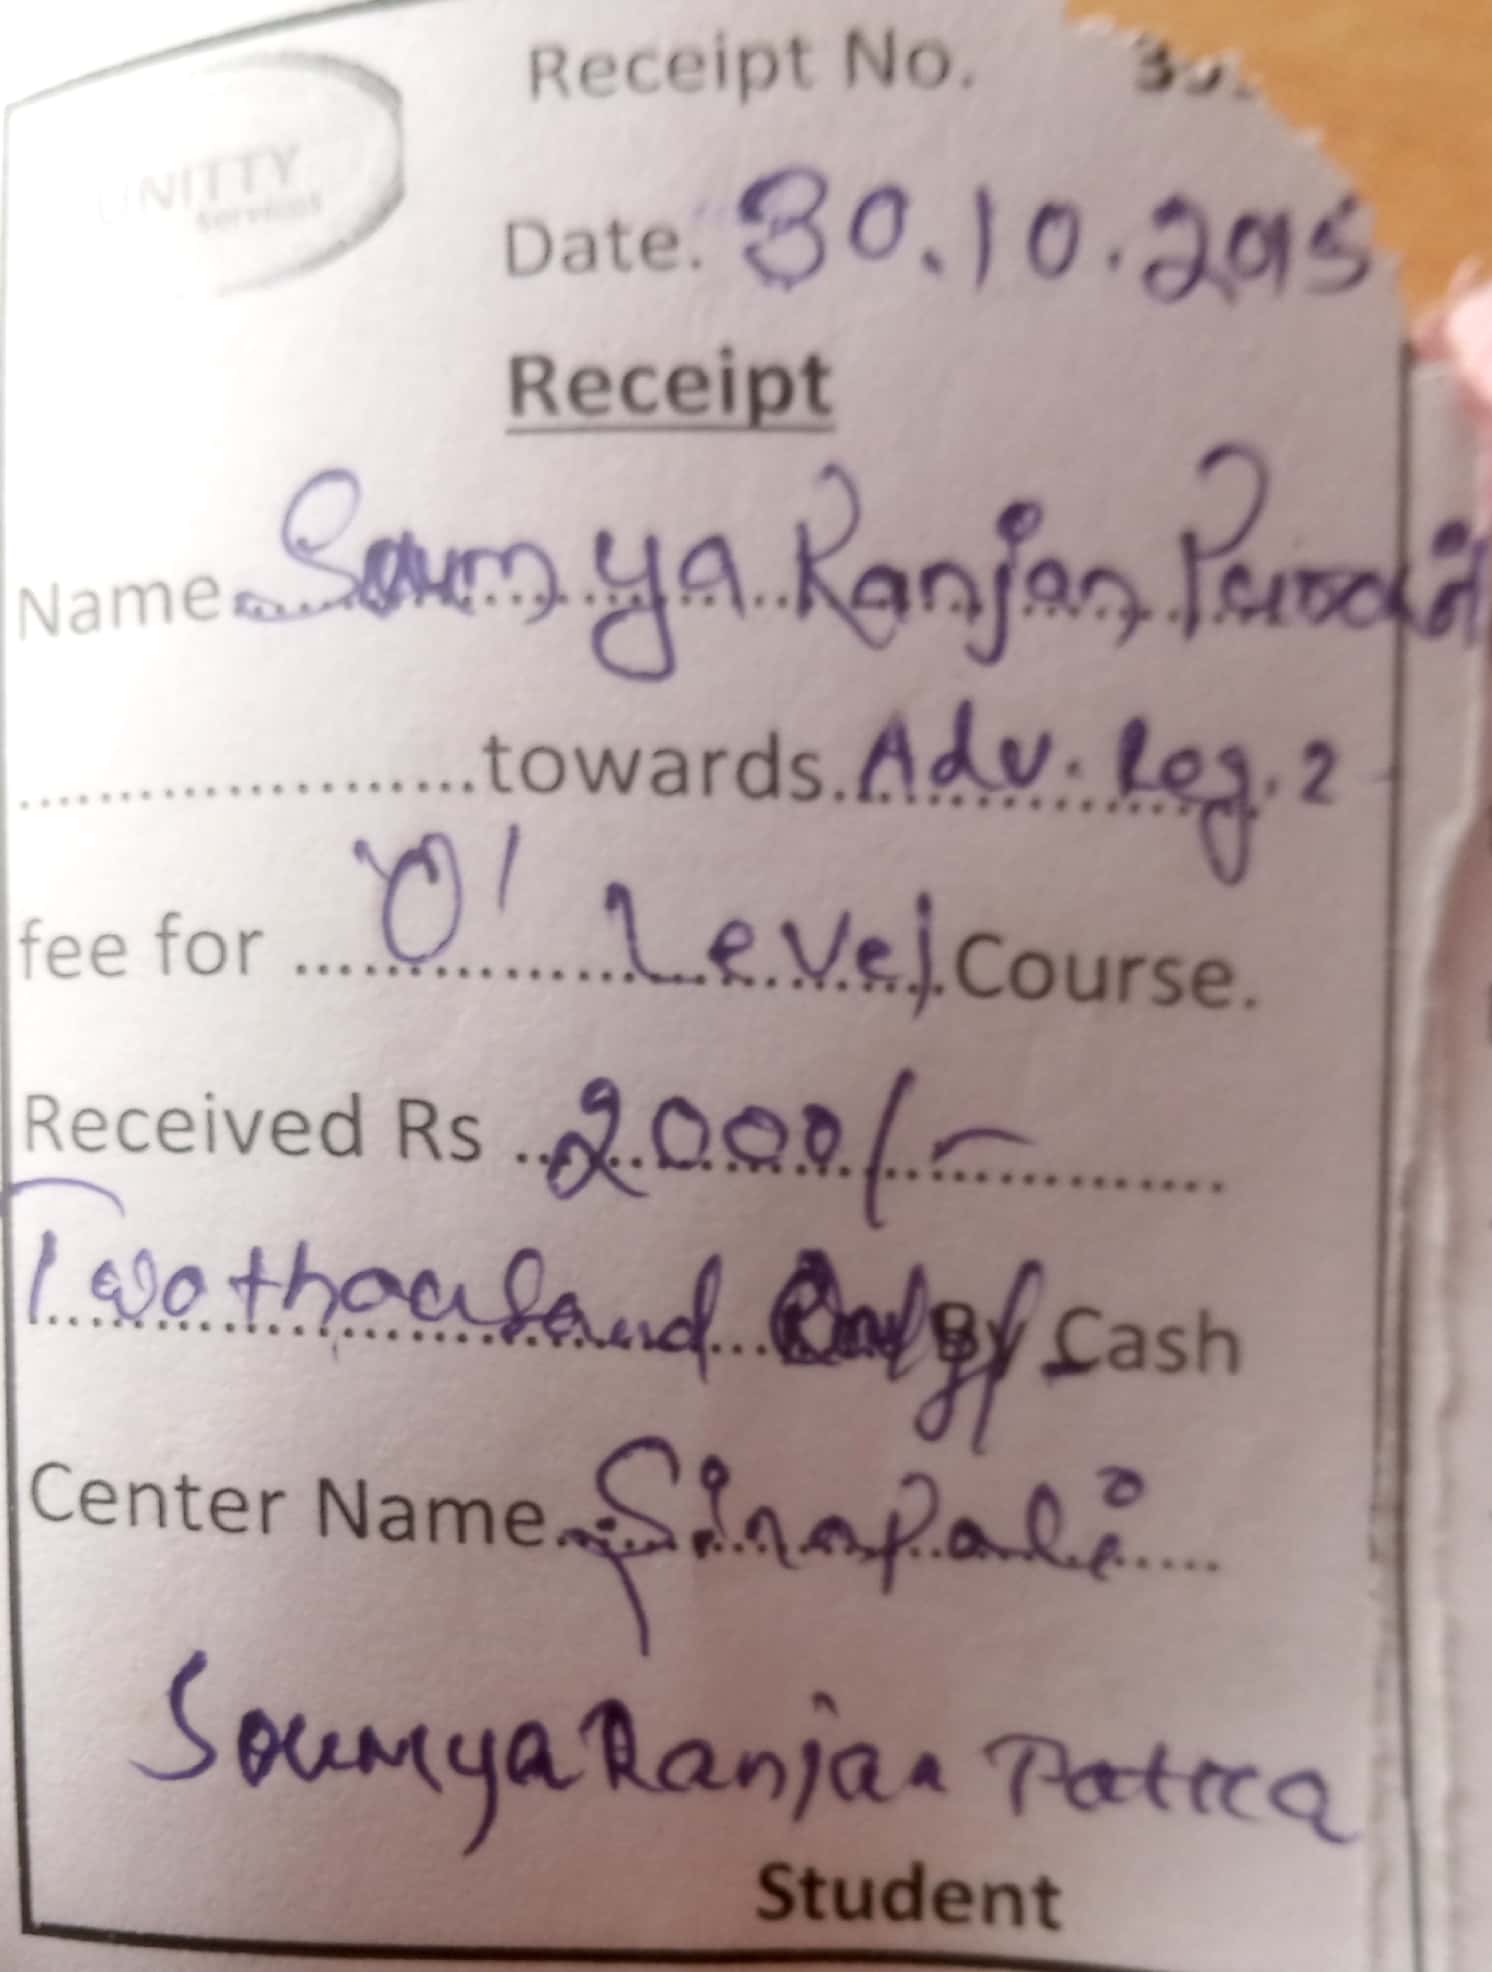 Receipt No.
UNITTY
Services
Date. 30.10.2015
Receipt
Name Soumya Ranjan
towards Adv. Reg. 2
fee for 'O' Level Course.
Received Rs 2000/-
Two thousand Only By Cash
Center Name Sinapali
Soumya Ranjan Patra
Student